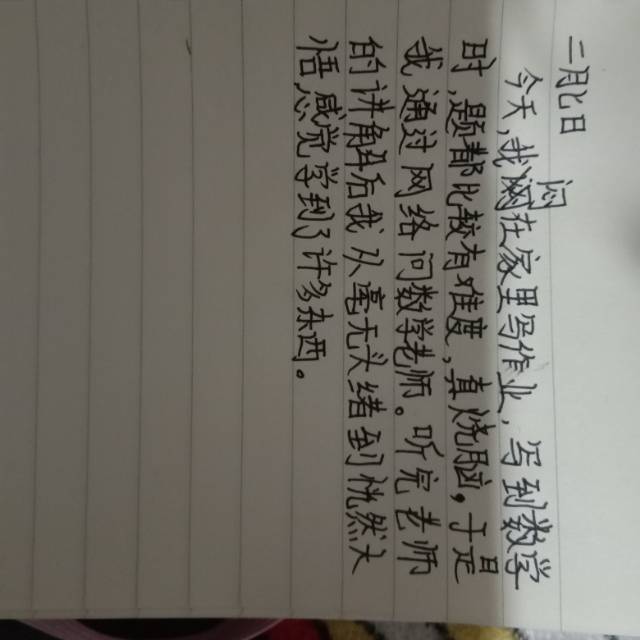 二月七日
今天,我闷在家里写作业,写到数学
时,题都比较有难度,真烧脑,于是
我通过网络问数学老师。听完老师
的讲解后我从毫无头绪到恍然大
悟,感觉学到了许多东西。